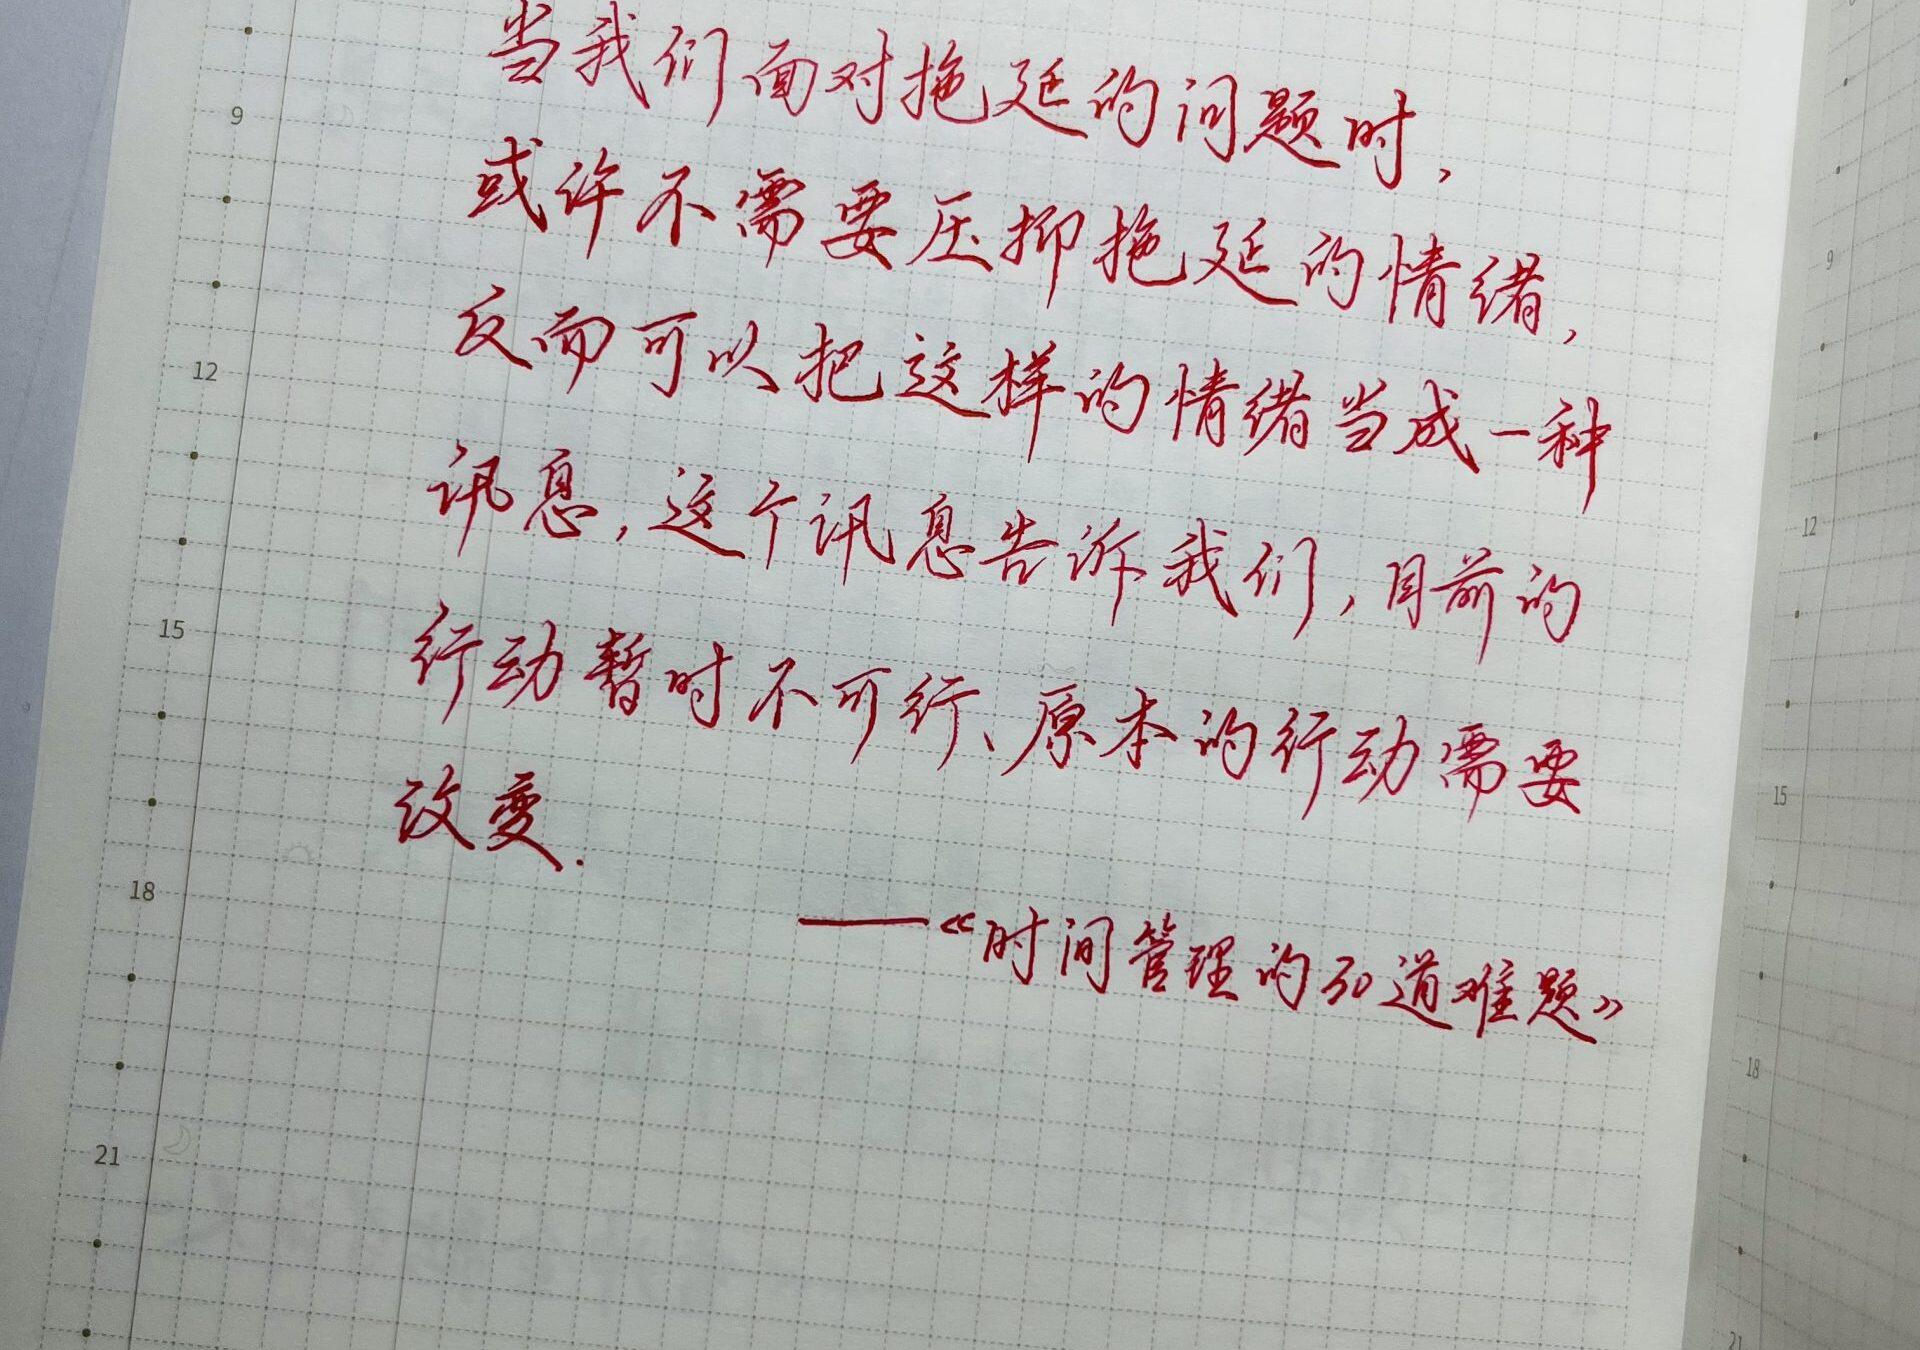 当我们面对拖延的问题时,
或许不需要压抑拖延的情绪,
反而可以把这样的情绪当成一种
讯息,这个讯息告诉我们,目前的
行动暂时不可行、原本的行动需要
改变.
——《时间管理的50道难题》
9
12
15
18
21
9
12
15
18
21